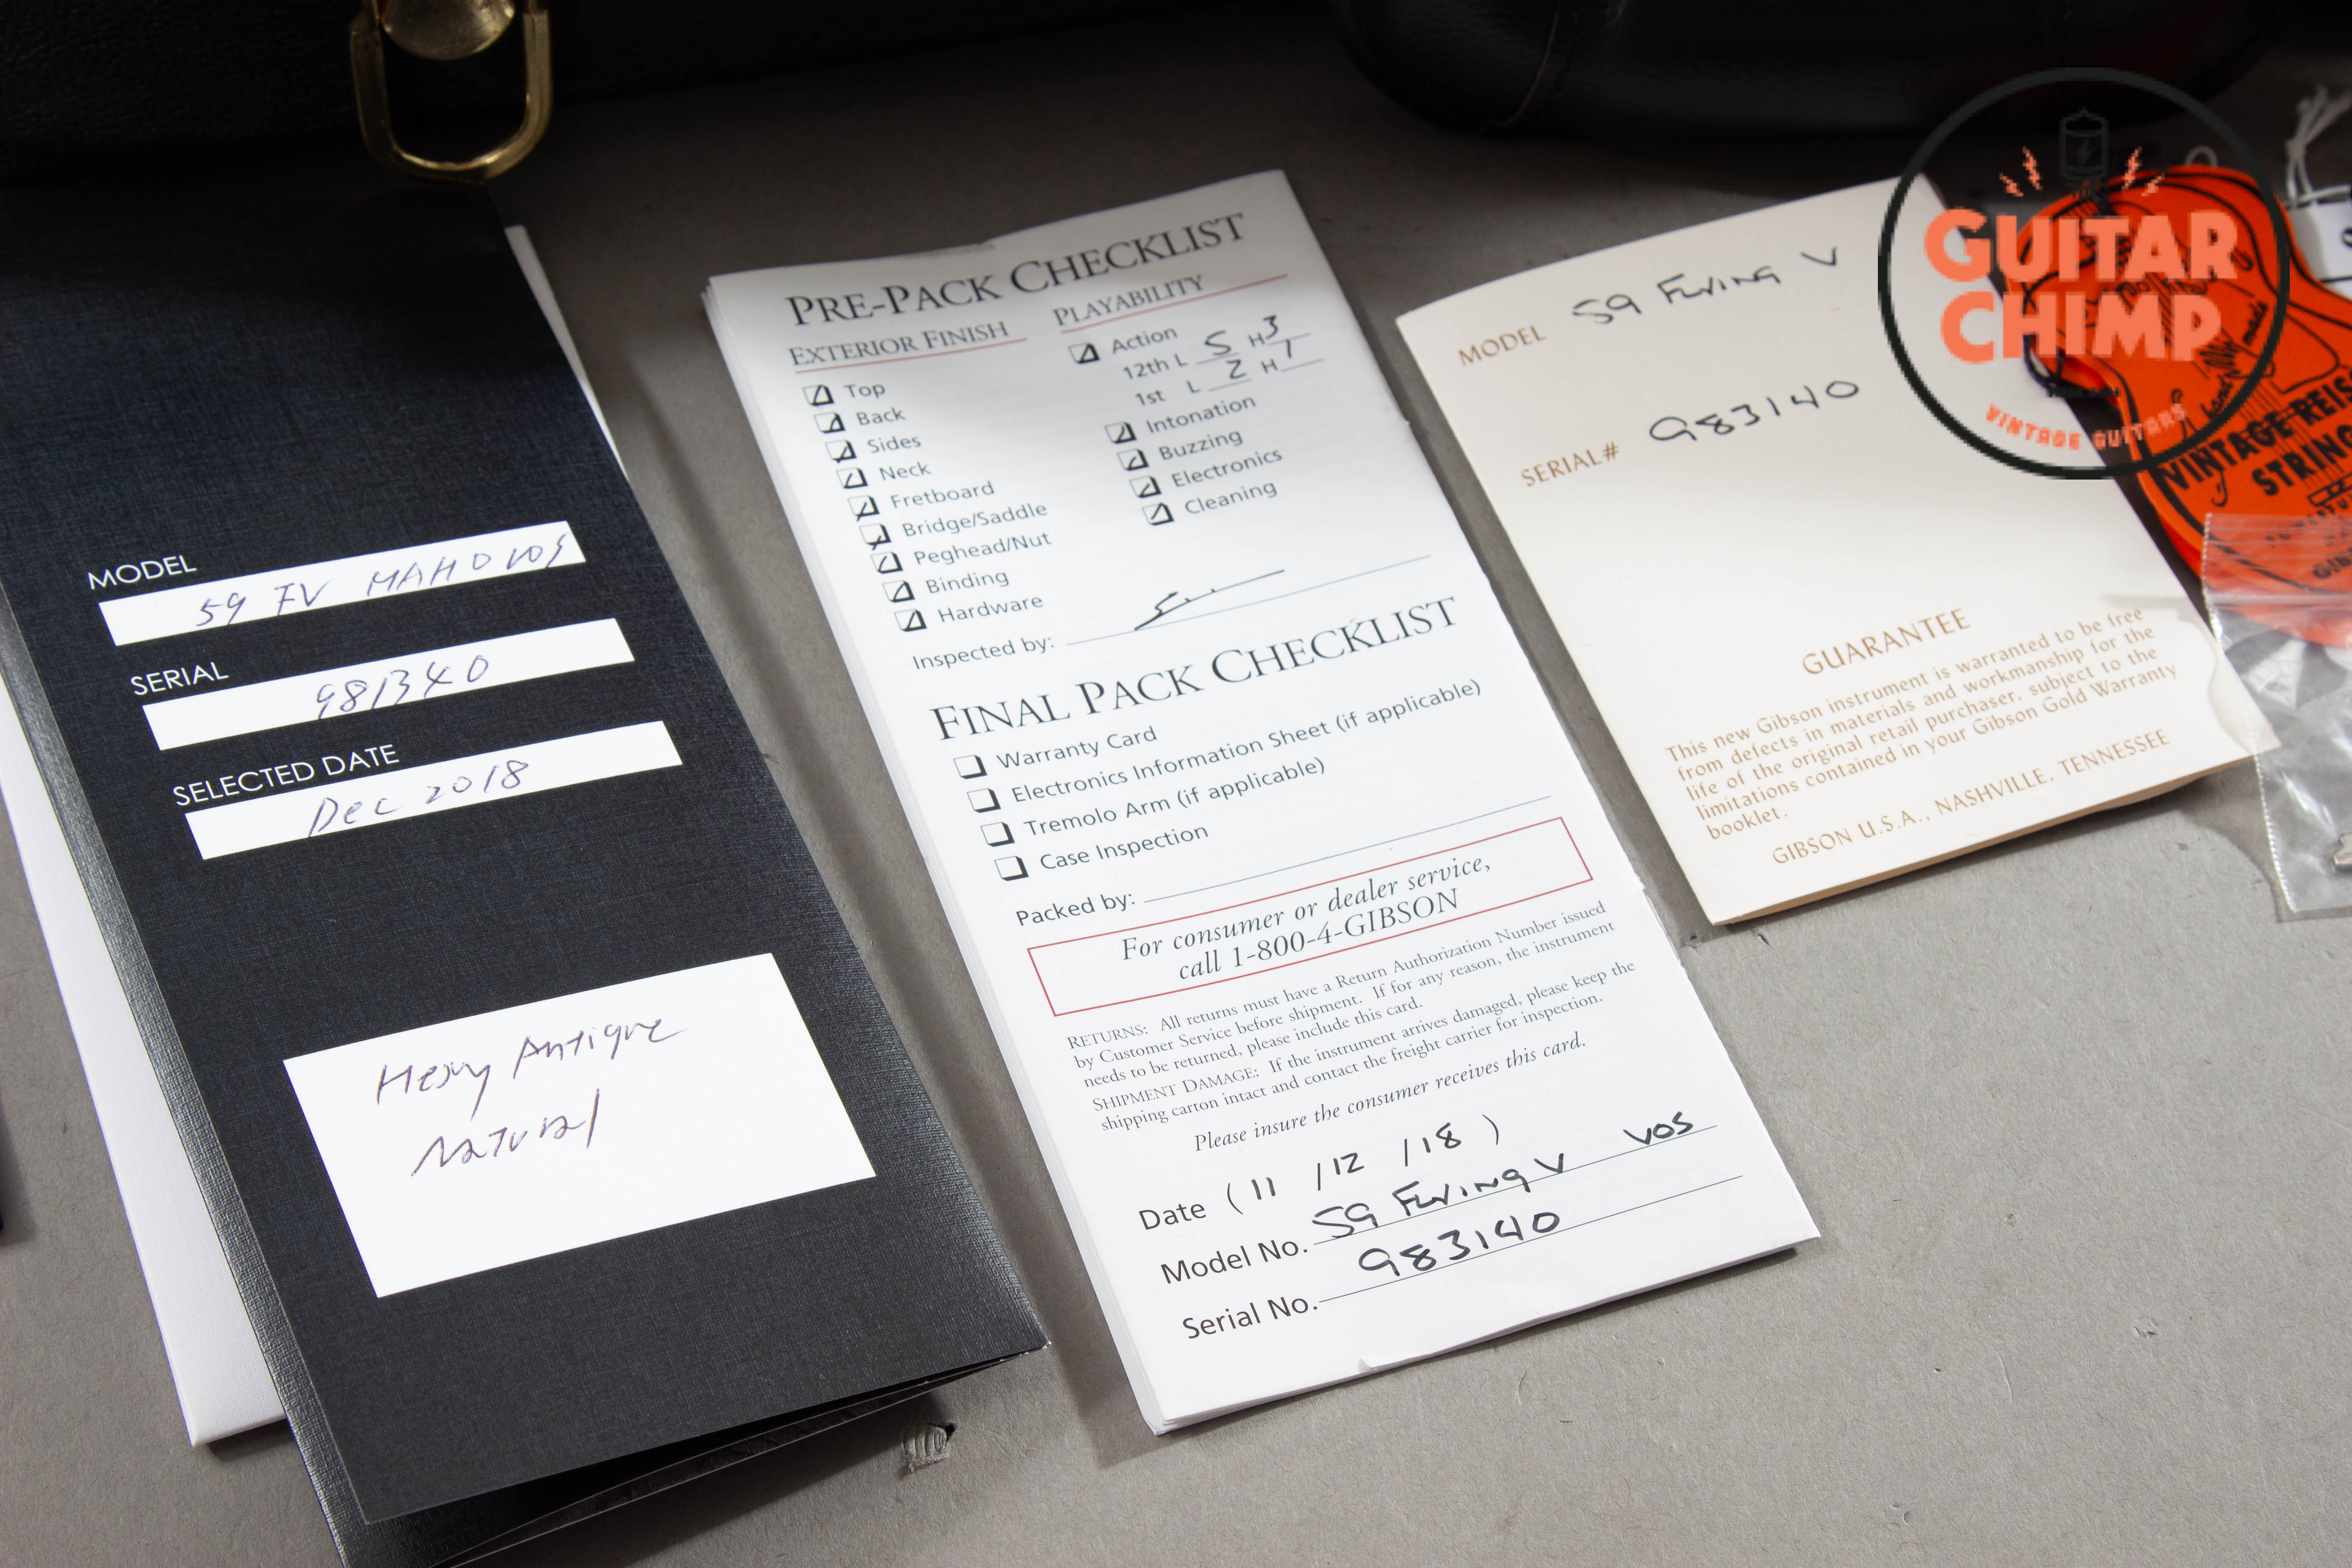 MODEL
59 FV MAHO VOS
SERIAL
981340
SELECTED DATE
Dec 2018
Heavy Antique
Natural
PRE-PACK CHECKLIST
EXTERIOR FINISH
Top
Back
Sides
Neck
Fretboard
Bridge/Saddle
Peghead/Nut
Binding
Hardware
PLAYABILITY
Action
12th L 5 H 3
1st L 2 H 1
Intonation
Buzzing
Electronics
Cleaning
Inspected by:
FINAL PACK CHECKLIST
Warranty Card
Electronics Information Sheet (if applicable)
Tremolo Arm (if applicable)
Case Inspection
Packed by:
For consumer or dealer service,
call 1-800-4-GIBSON
RETURNS: All returns must have a Return Authorization Number issued
by Customer Service before shipment. If for any reason, the instrument
needs to be returned, please include this card.
SHIPMENT DAMAGE: If the instrument arrives damaged, please keep the
shipping carton intact and contact the freight carrier for inspection.
Please insure the consumer receives this card.
Date ( 11 / 12 / 18 )
Model No. 59 FLYING V VOS
Serial No. 983140
MODEL 59 FLYING V
SERIAL# 983140
GUARANTEE
This new Gibson instrument is warranted to be free
from defects in materials and workmanship for the
life of the original retail purchaser, subject to the
limitations contained in your Gibson Gold Warranty
booklet.
GIBSON U.S.A., NASHVILLE, TENNESSEE
GUITAR
CHIMP
VINTAGE GUITARS
VINTAGE REIS
STRING